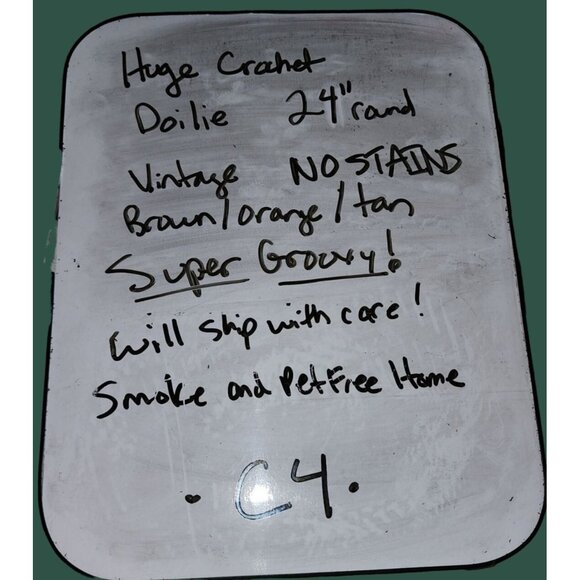 Huge Crochet
Doilie 24" round
Vintage NO STAINS
Brown/orange/tan
Super Groovy!
will ship with care!
Smoke and Pet Free Home
. C4.